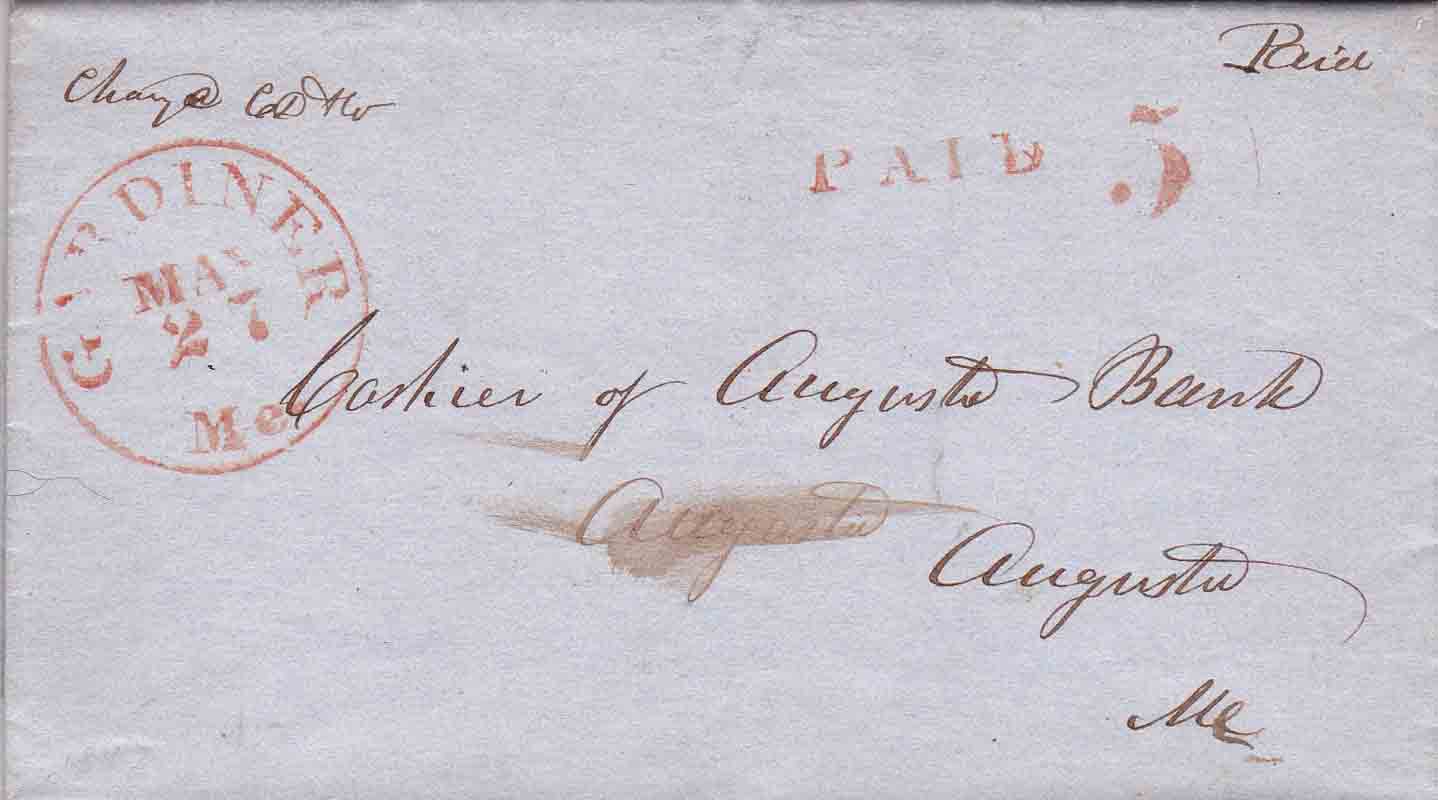 Paid
PAID 5
GARDINER
MAY
27
Me.
Cashier of Augusta Bank
Augusta
Augusta
Me